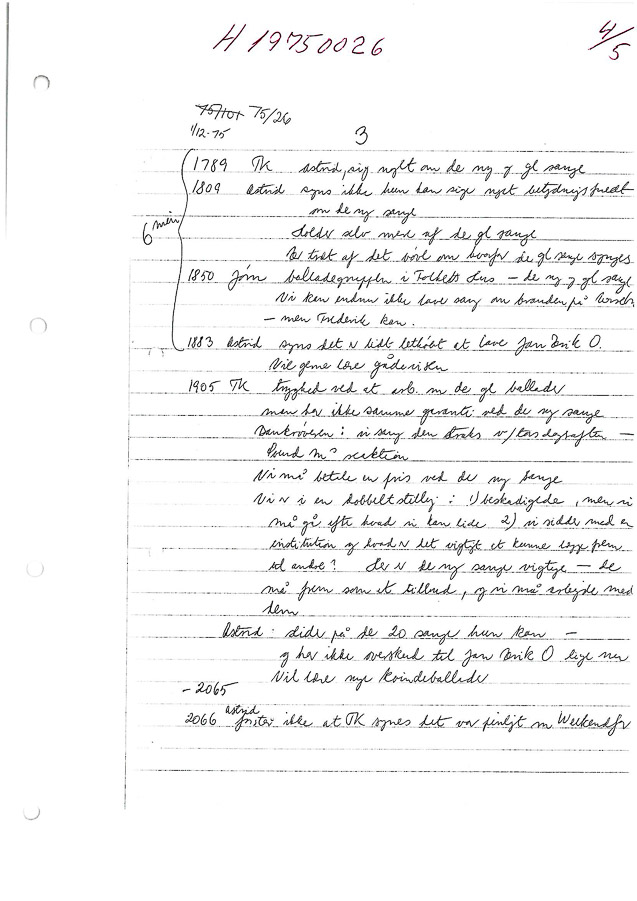 H 19750026
4/5
75/101 75/26
1/12-75
3
1789 TK Astrid, sig nyt om de ny og gl sange
1809 Astrid syns ikke hun kan sige noget betydningsfuldt
om de ny sange
Holder selv mest af de gl sange
Er træt af det vrøvl om hvorfor de gl sange synges
6 min
1850 Jørn balladegruppen i Folkets Hus – de ny og gl sange
Vi kan endnu ikke lave sang om branden på
– men Frederik kan.
1883 Astrid syns det er lidt letkøbt at lave Jan Erik O.
Vil gerne lære gåderiden
1905 TK tryghed ved at arb. m de gl ballader
man har ikke samme garanti ved de ny sange
Bankrøveren: vi sang den straks v/ torsdagsaften –
Povl M's reaktion
Vi må betale en pris ved de ny sange
Vi er i en dobbeltstilling: 1) beskadigede, men vi
må gå efter hvad vi kan lide 2) vi sidder med en
institution og hvad er det vigtigt at kunne lægge frem
til andre? Her er de ny sange vigtige – de
må frem som et tilbud, og vi må arbejde med
dem
Astrid: slider på de 20 sange hun kan –
og har ikke overskud til Jan Erik O lige nu
Vil lære nye kvindeballader
– 2065
2066 Astrid forstår ikke at TK synes det var pinligt m Weekendfr